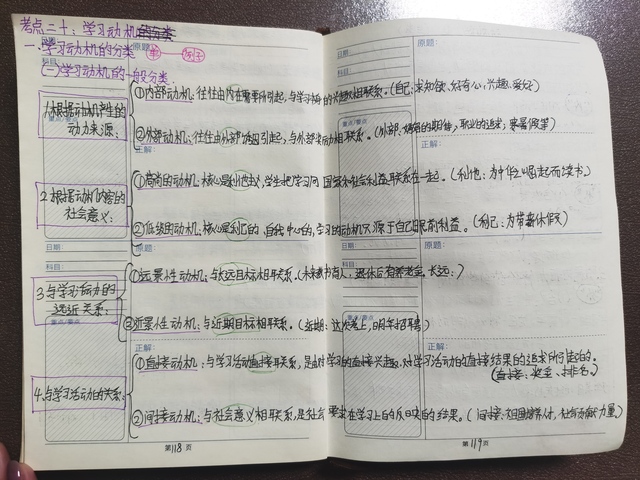 考点二十：学习动机
一.学习动机的分类 单——例子
(一)学习动机的一般分类
1.根据动机产生的动力来源：
①内部动机：往往由内在需要所引起，与学习相联系。(自己：求知欲、好奇心、兴趣、爱好)
②外部动机：往往由外部引起，与外部相联系。(外部、妈妈的期待，职业的追求，寒暑假
2.根据动机内容的社会意义：
①高尚的动机：核心是利他主义，学生把学习同国家和社会利益联系在一起。(利他：为中华之崛起而读书。)
②低级的动机：核心是利己的、自我中心的，学习的动机只源于自己眼前利益。(利己：为
3.与学习活动的远近关系：
①远景性动机：与长远目标相联系。(未来教书育人，退休后有养老金。长远：)
②近景性动机：与近期目标相联系。(近期：这次考上，明年招聘
4.与学习活动的关系：
①直接动机：与学习活动直接联系，是由对学习的直接兴趣，对学习活动的直接结果的追求所引起的。
(直接：奖金、排名。)
②间接动机：与社会意义相联系，是社会要求在学习上的反映的结果。(间接、祖国培养人才，社会贡献力量)
原题：
科目
重点/难点
正解：
原题：
日期
科目：
重点/难点
正解：
第118页
原题：
日期
科目
重点/难点
正解：
日期
原题：
科目：
重点/难点
正解：
第119页